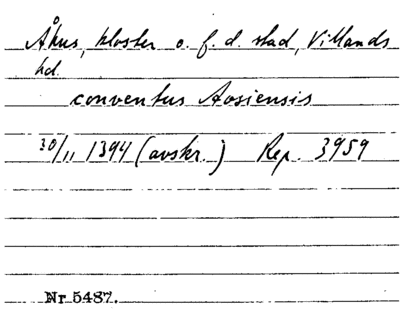 Åhus, kloster o. f. d. stad, Villands
hd.
conventus Aosiensis
30/11 1394 (avskr.) Rep. 3959
Nr 5487.